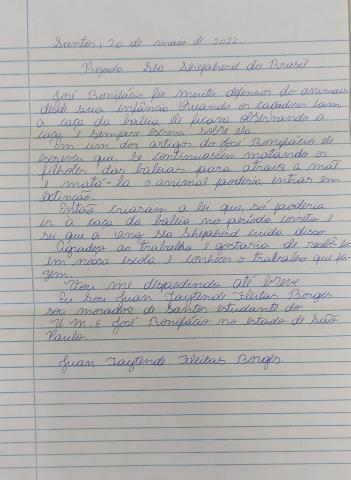 Santos, 20 de maio de 2022.
Prezada Sea Shepherd do Brasil
José Bonifácio foi muito defensor do animais
desde sua infância. Quando os caçadores iam
a caça da baleia ele ficava observando a
caça e sempre escrevia sobre ela.
Em um dos artigos do José Bonifácio ele
escreveu que, se continuassem matando os
filhotes das baleias para atrair a mãe
e matá-la o animal poderia entrar em
extinção.
Então criaram a lei que só poderia
ir à caça da baleia no período correto e
sei que a ong Sea Shepherd cuida disso.
Agradeço ao trabalho e gostaria de recebê-los
em nossa escola e conhecer o trabalho que fa-
zem.
Vou me despedindo até breve
Eu sou Juan Fleitas Borges
sou morador de Santos estudante do
U.M.E José Bonifácio no estado de São
Paulo.
Juan Fleitas Borges